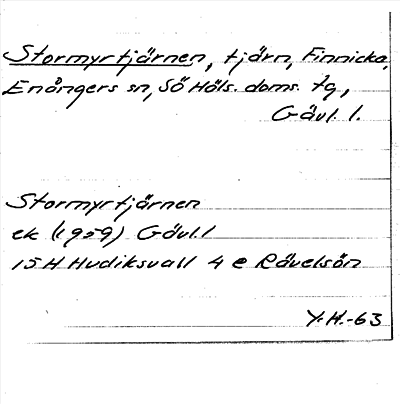 Stormyrtjärnen, tjärn, Finnicka,
Enångers sn, SÖ Häls. doms. tg,
Gävl. l.
Stormyrtjärnen
ek (1959) Gävl. l
15 H Hudiksvall 4 e Rävelsön
Y.H.-63